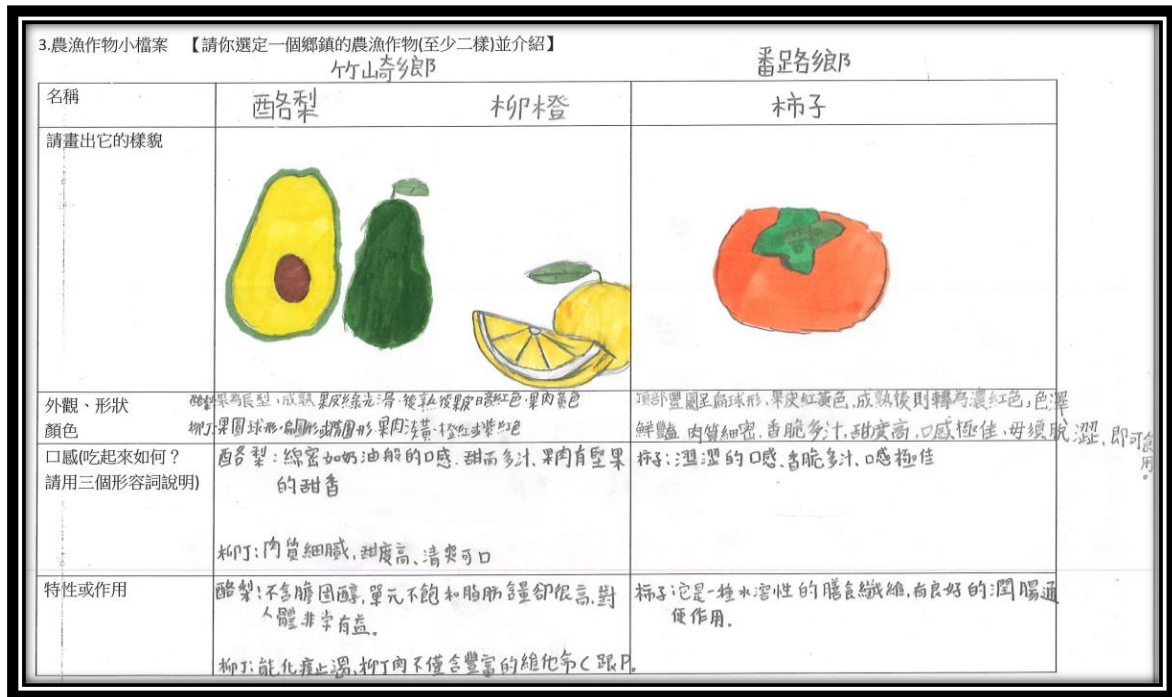 3.農漁作物小檔案 【請你選定一個鄉鎮的農漁作物(至少二樣)並介紹】
竹崎鄉 番路鄉
名稱 酪梨 柳橙 柿子
請畫出它的樣貌
外觀、形狀
顏色
酪梨果為長型,成熟果皮綠光滑,後熟後果皮暗紅色,果肉黃色
柳丁:果圓球形,扁圓形或橢圓形,果肉淡黃、橙紅或紫紅色
頂部豐圓呈扁球形,果皮紅黃色,成熟後則轉為濃紅色,色澤
鮮豔,肉質細密、香脆多汁、甜度高,口感極佳、毋須脫澀,即可食用。
口感(吃起來如何?
請用三個形容詞說明)
酪梨:綿密如奶油般的口感、甜而多汁、果肉有堅果
的甜香
柳丁:肉質細膩、甜度高、清爽可口
柿子:澀澀的口感、香脆多汁、口感極佳
特性或作用
酪梨:不含膽固醇,單元不飽和脂肪含量卻很高,對
人體非常有益。
柳丁:能化痰止渴,柳丁肉不僅含豐富的維他命C跟P。
柿子:它是一種水溶性的膳食纖維,有良好的潤腸通
便作用。